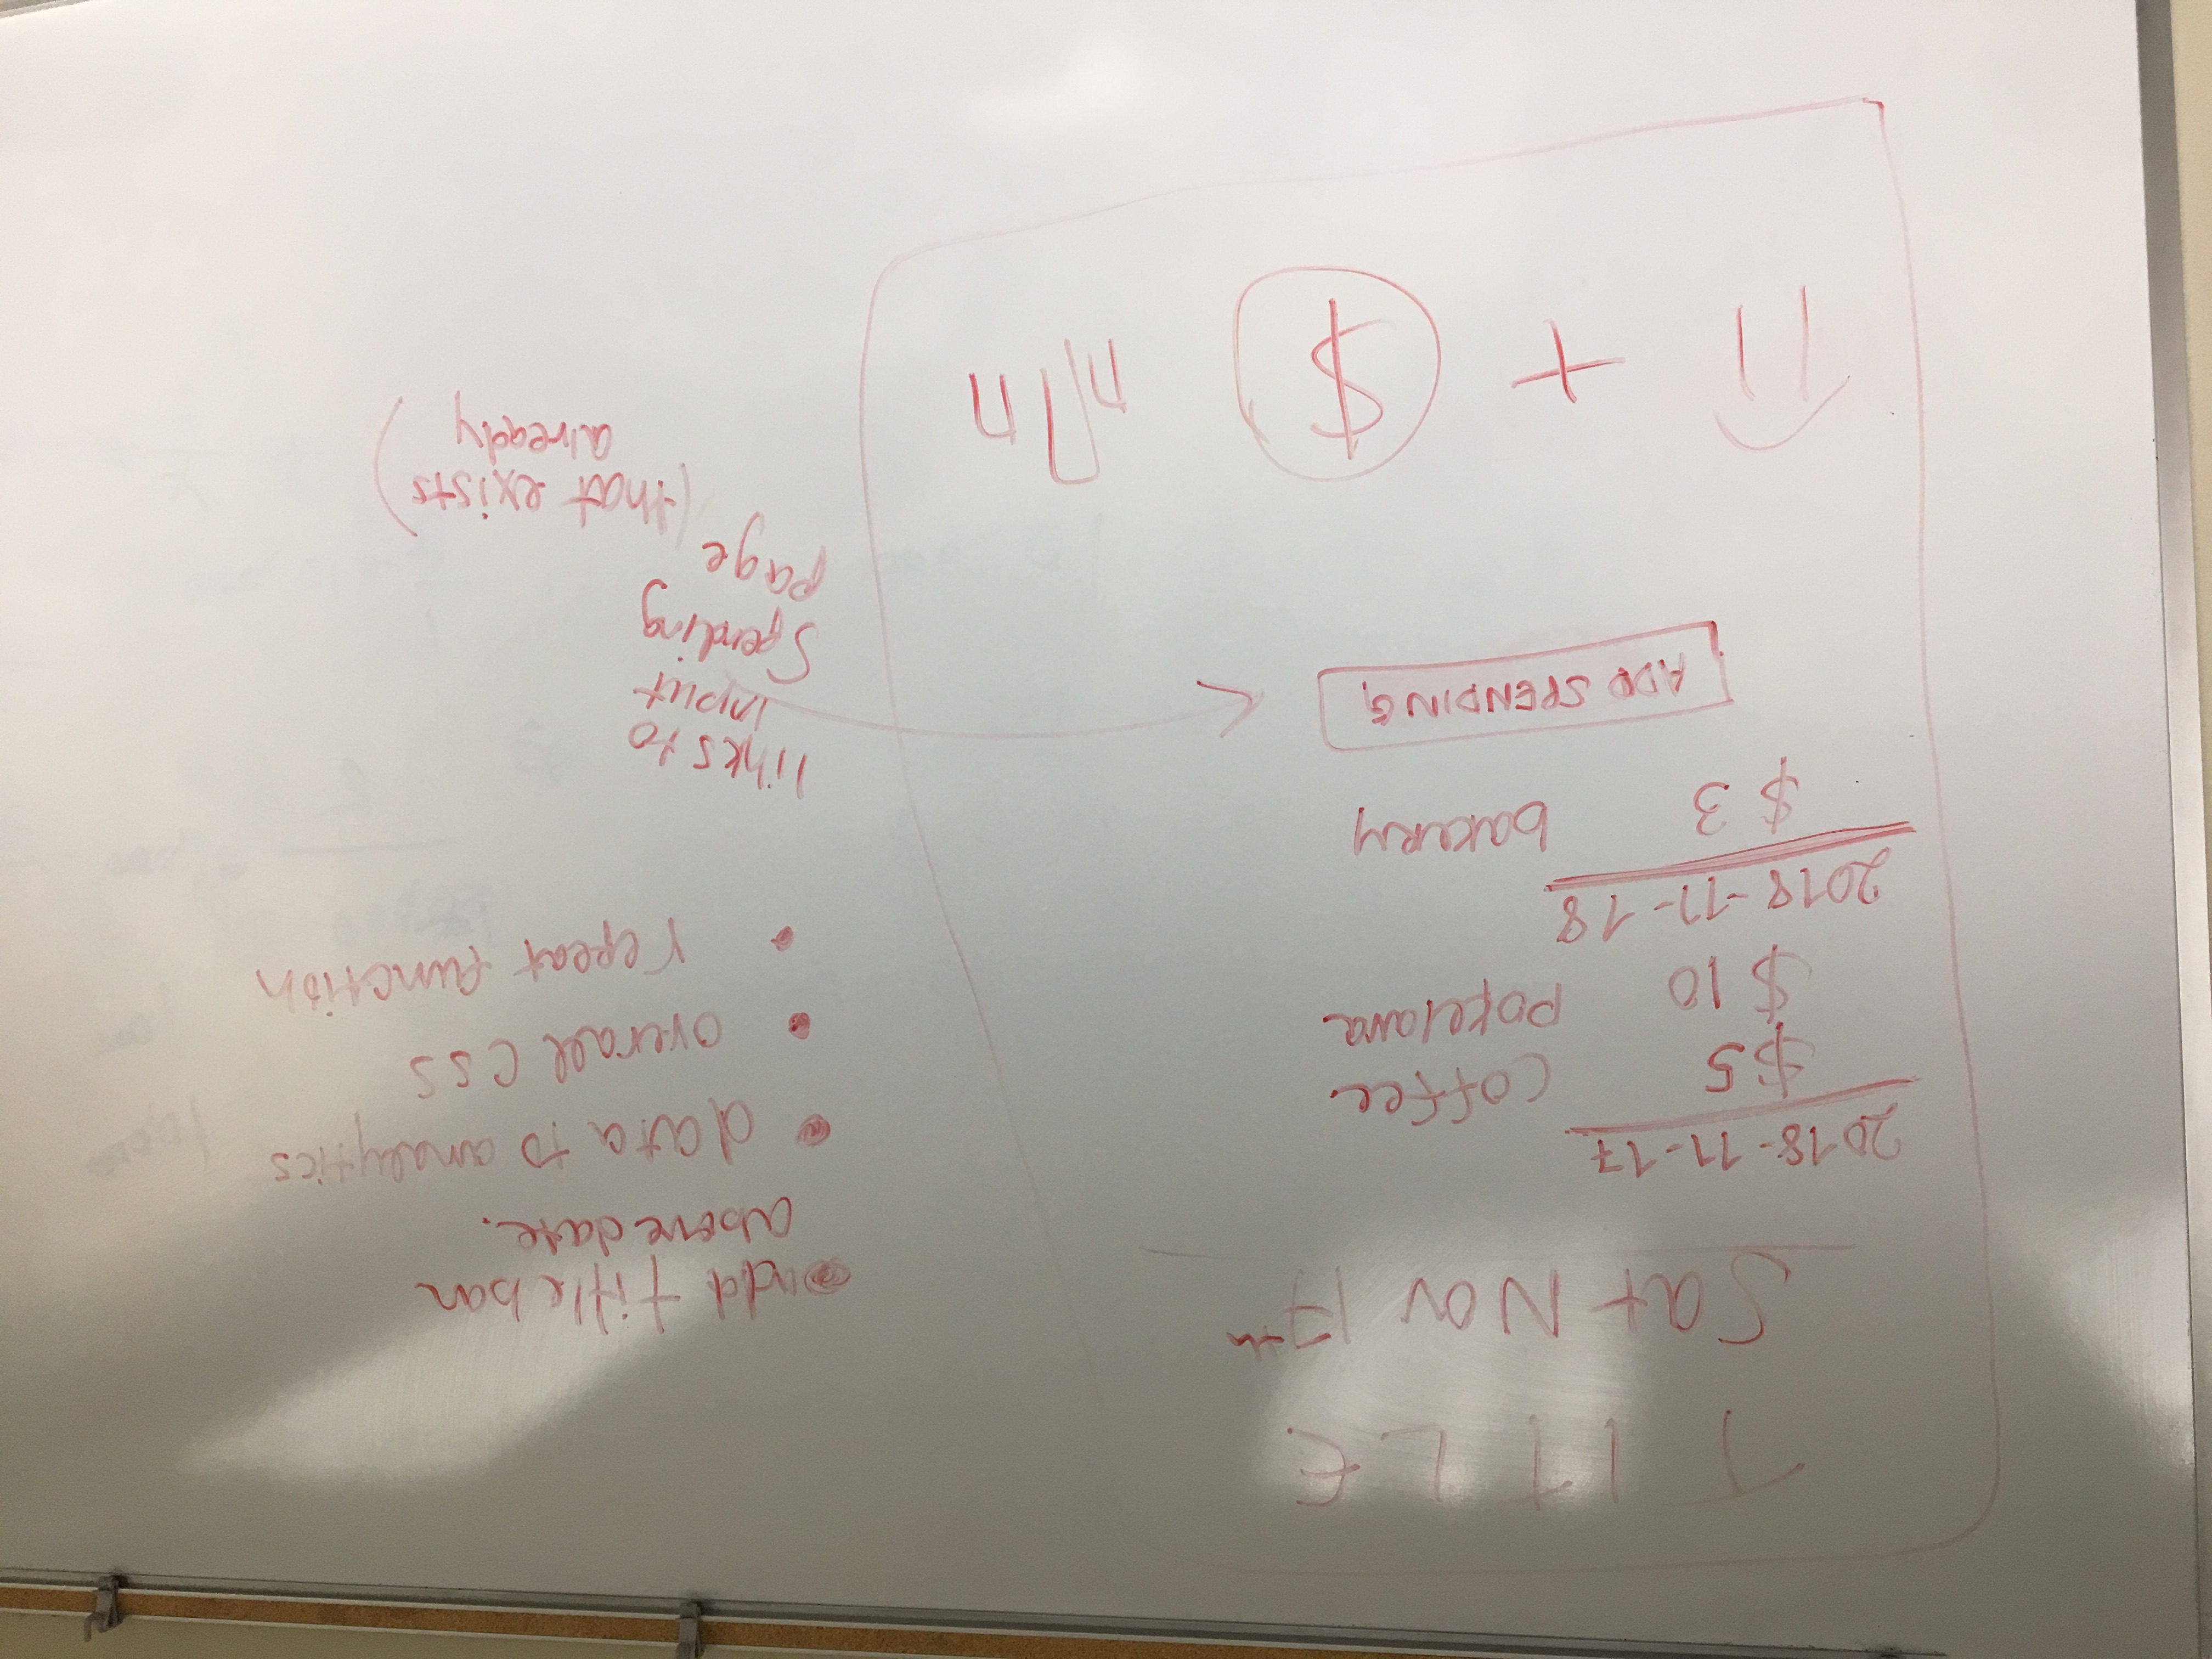 TITLE
Sat Nov 17th
2018-11-17
$5 coffee
$10 pokelava
2018-11-18
$3 bakery
ADD SPENDING
+ $
add title bar
above date.
data to analytics
overall CSS
repeat function
links to
input
Spending
page
(that exists
already)